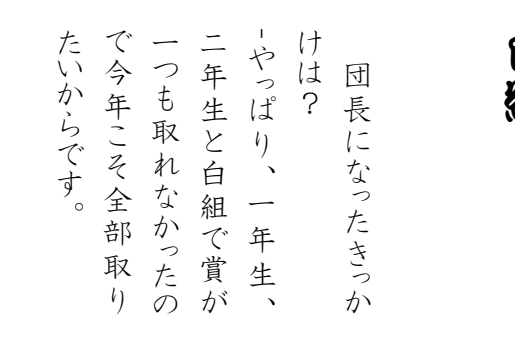 団長になったきっか
けは？
-やっぱり、一年生、
二年生と白組で賞が
一つも取れなかったの
で今年こそ全部取り
たいからです。